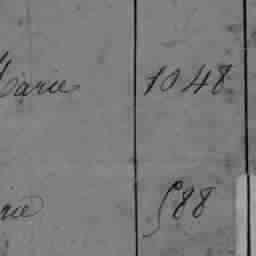 Marie 1048
588